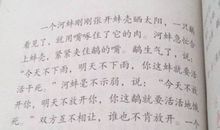 一个河蚌刚刚张开蚌壳晒太阳，一只鹬
看见了，就用嘴啄住了它的肉。河蚌急忙合
上蚌壳，紧紧夹住鹬的嘴。鹬生气了，说：
“今天不下雨，明天不下雨，你这蚌就要活
活干死。”河蚌毫不示弱，说：“今天不放
开你，明天不放开你，你这鹬就要活活地
死。”双方互不相让，谁也不肯放开。一个